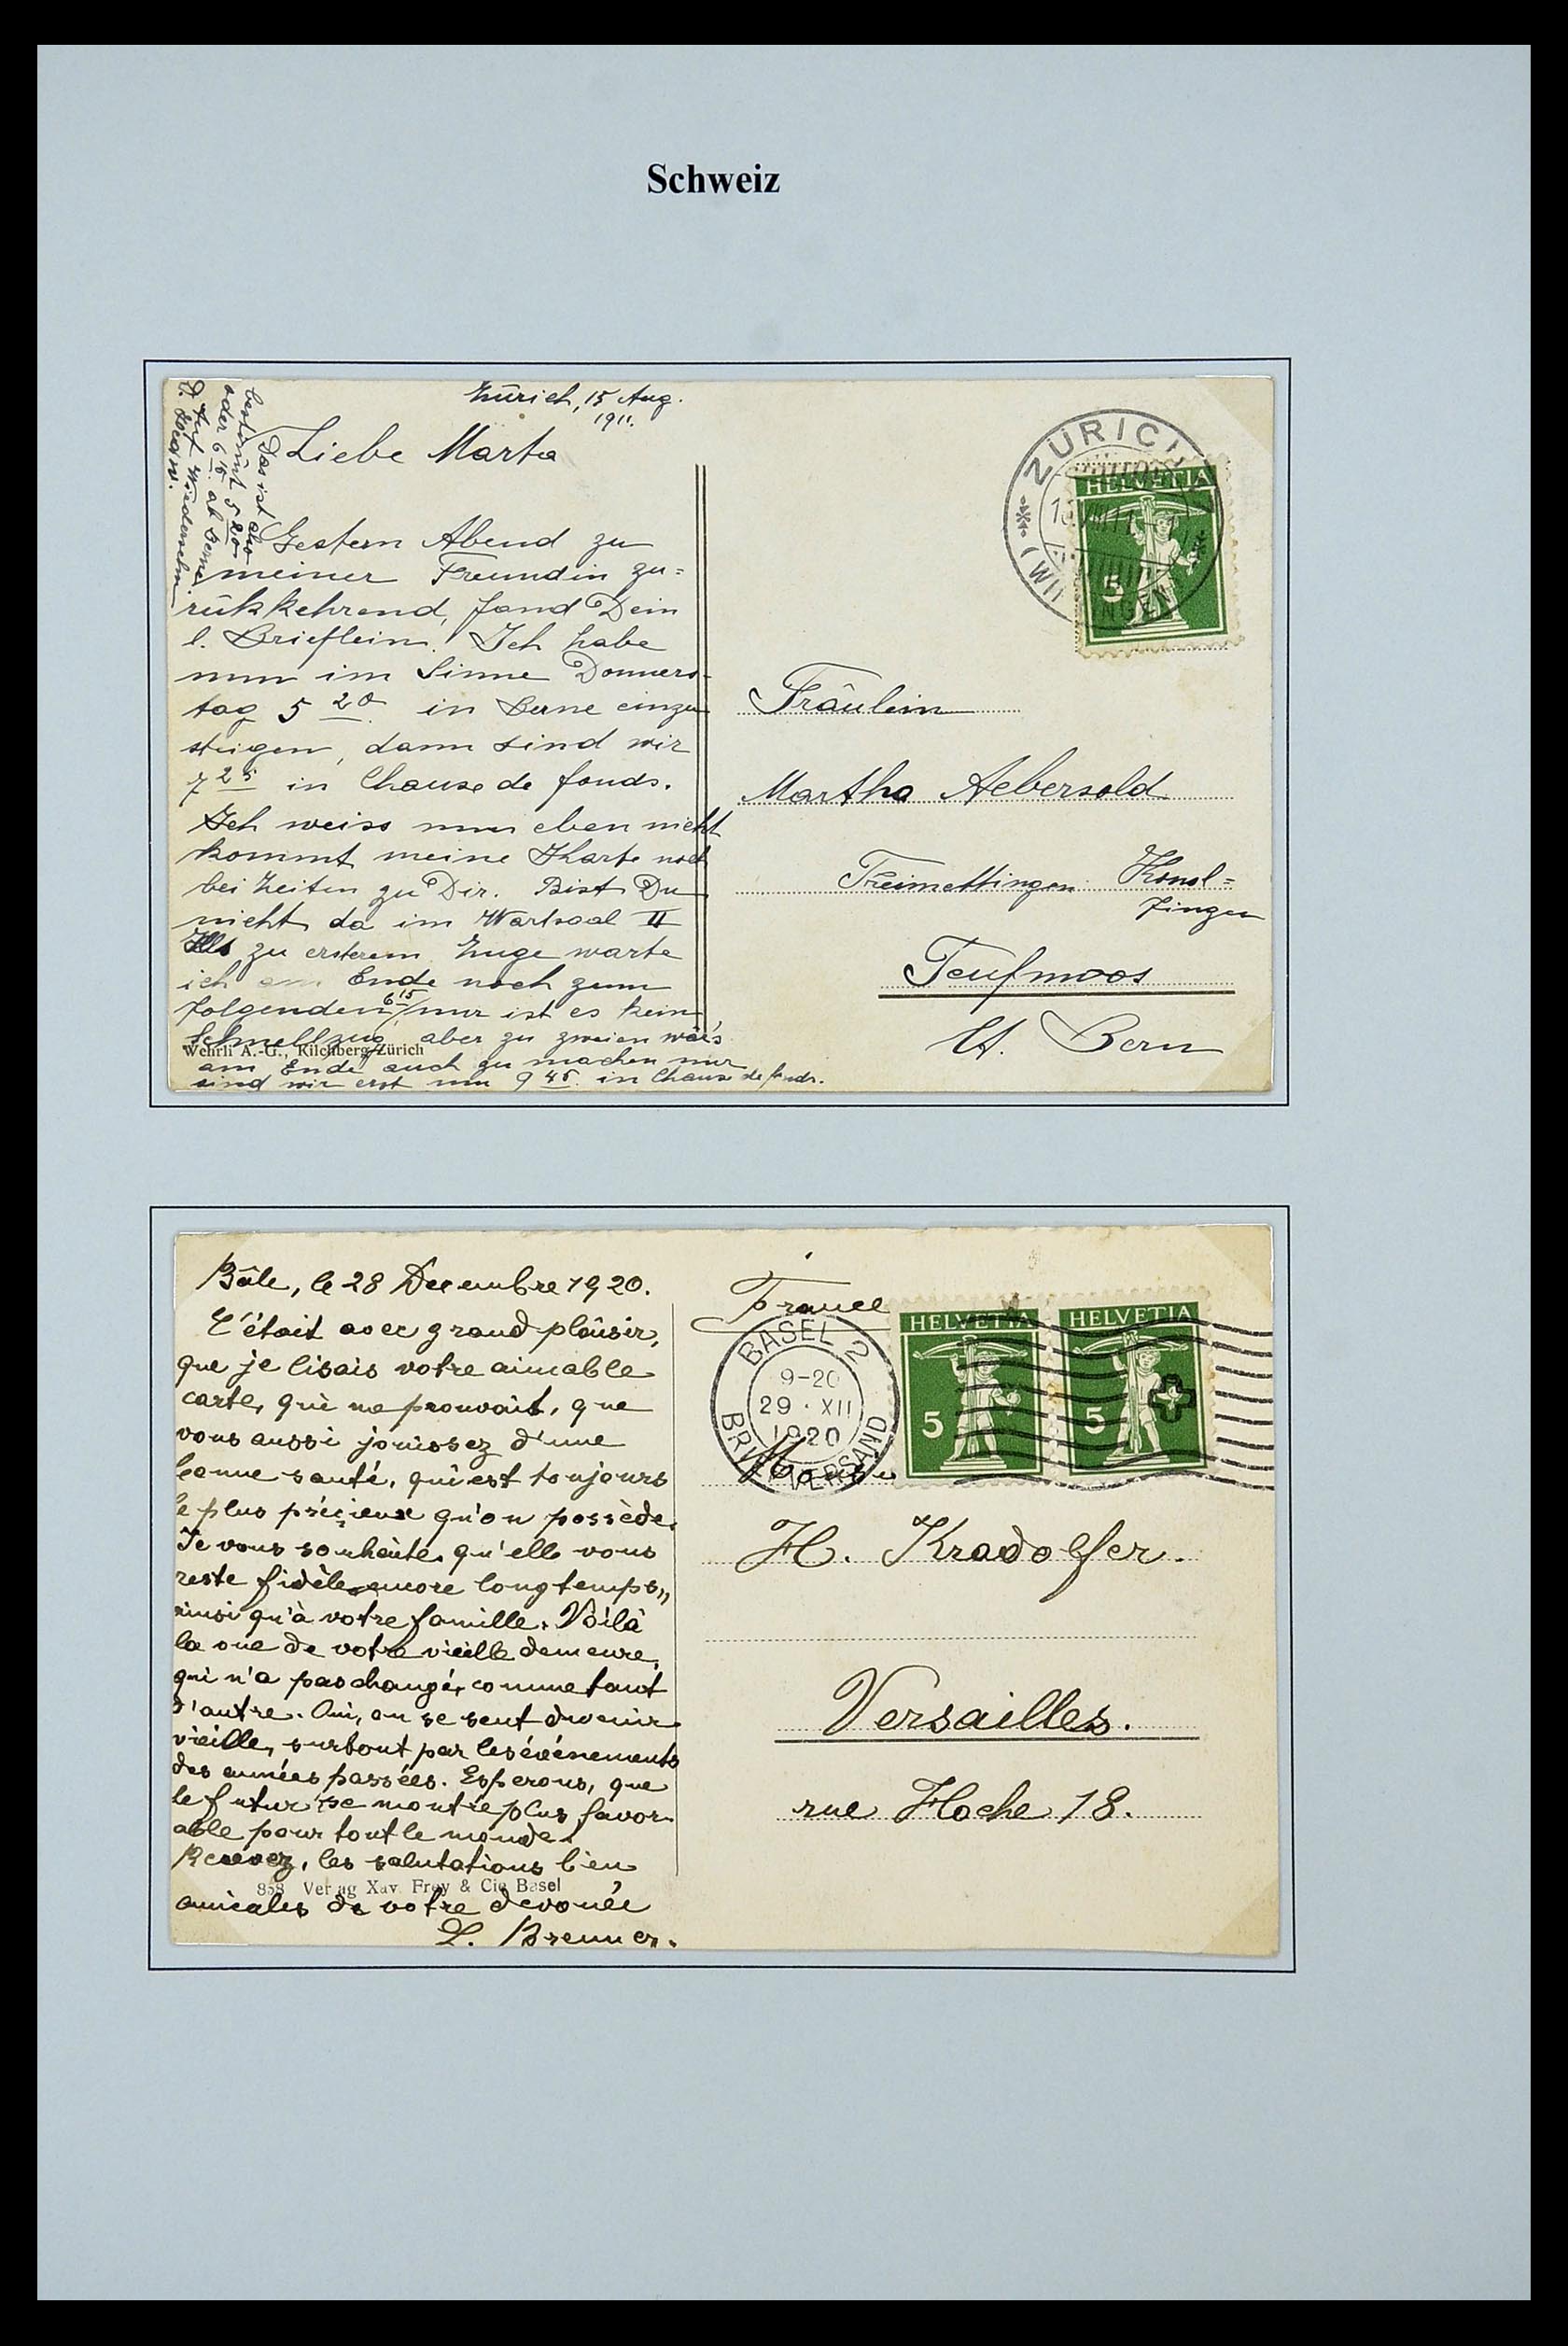 Schweiz
Zürich, 15 Aug.
1911.
Liebe Marta
Gestern Abend zu
meiner Freundin zu=
rükkehrend, fand Dein
l. Brieflein. Ich habe
nun im Sinne Donners-
tag 5 20 in Berne einzu
steigen, dann sind wir
7 25 in Chause de fonds.
Ich weiss nun eben nicht
kommt meine Karte noch
bei Zeiten zu Dir. Bist Du
nicht da im Wartsaal II
zu ersterem Zuge warte
ich am Ende noch zum
folgenden 6 15 / nur ist es kein
Schnellzug, aber zu zweien wär's
am Ende auch zu machen nur
sind wir erst um 9 45 in Chause de fonds.
Das ist also
bestimmt 5 20
oder 6 15 ab Berne
Auf Wiedersehn
Wehrli A.-G., Kilchberg-Zürich
ZÜRICH
(WI INGEN)
HELVETIA
5
Fräulein
Martha Aebersold
Freimettingen Konol=
fingen
Teufmoos
Kt. Bern
Bâle, le 28 Decembre 1920.
C'était avec grand plaisir,
que je lisais votre aimable
carte, qui me prouvait, que
vous aussi jouissez d'une
bonne santé, qui est toujours
le plus précieux qu'on possède.
Je vous souhaite, qu'elle vous
reste fidèle encore longtemps,
ainsi qu'à votre famille. Voilà
la vue de votre vieille demeure,
qui n'a pas changé, comme tant
d'autre. Oui, on se sent devenir
vieille, surtout par les événements
des années passées. Esperons, que
le futur se montre plus favor-
able pour tout le monde.
Recevez, les salutations bien
amicales de votre devouée
L. Brenner.
858 Verlag Xav. Frey & Cie Basel
France
BASEL 2
9-20
29 · XII
1920
BRIEFVERSAND
HELVETIA
5
HELVETIA
5
H. Kradolfer.
Versailles.
rue Hoche 18.